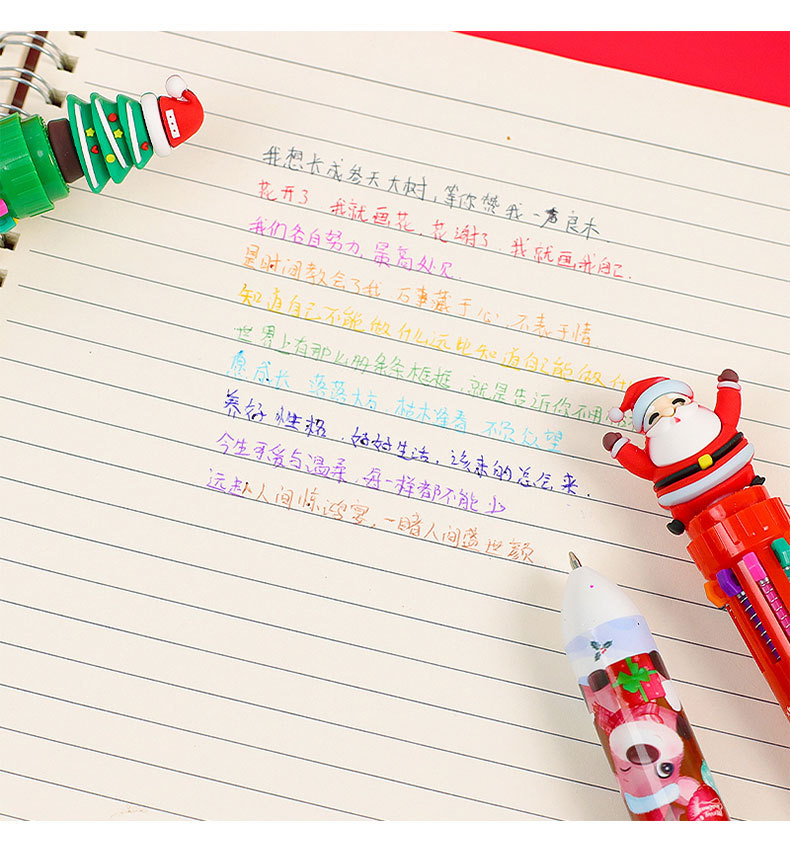 我想长成参天大树，等你赞我一声良木．
花开了 我就画花，花谢了，我就画我自己．
我们各自努力，最高处见
是时间教会了我 万事藏于心，不表于情
知道自己不能做什么远比知道自己能做什
世界上有那么的条条框框，就是告诉你不用
愿成长 落落大方，枯木逢春 不负众望
养好性格，好好生活，该来的总会来．
今生可爱与温柔，每一样都不能少
远赴人间惊鸿宴，一睹人间盛世颜